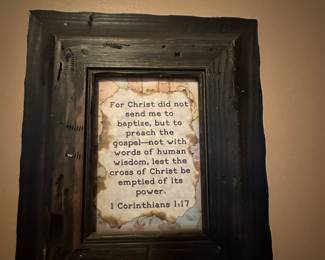 For Christ did not
send me to
baptize, but to
preach the
gospel—not with
words of human
wisdom, lest the
cross of Christ be
emptied of its
power.
1 Corinthians 1:17